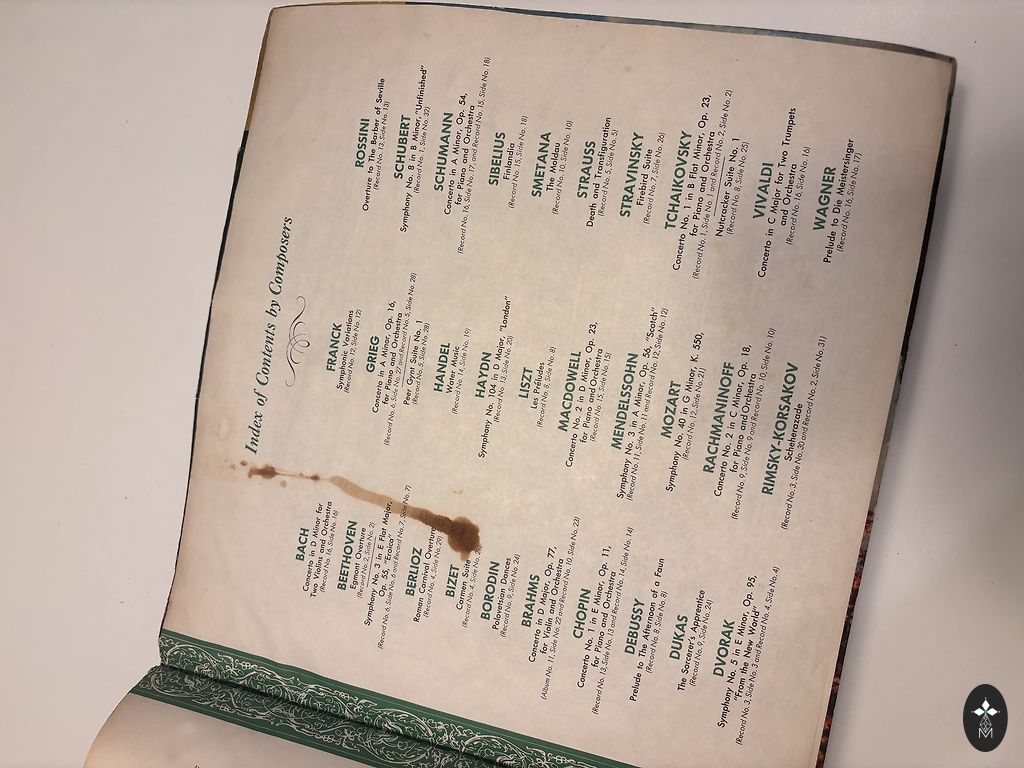 Index of Contents by Composers
BACH
Concerto in D Minor for
Two Violins and Orchestra
(Record No. 16, Side No. 16)
BEETHOVEN
Egmont Overture
(Record No. 2, Side No. 2)
Symphony No. 3 in E Flat Major,
Op. 55, "Eroica"
(Record No. 6, Side No. 6 and Record No. 7, Side No. 7)
BERLIOZ
Roman Carnival Overture
(Record No. 4, Side No. 29)
BIZET
Carmen Suite
(Record No. 4, Side No.
BORODIN
Polovetsian Dances
(Record No. 9, Side No. 24)
BRAHMS
Concerto in D Major, Op. 77,
for Violin and Orchestra
(Album No. 11, Side No. 22 and Record No. 10, Side No. 23)
CHOPIN
Concerto No. 1 in E Minor, Op. 11,
for Piano and Orchestra
(Record No. 13, Side No. 13 and Record No. 14, Side No. 14)
DEBUSSY
Prelude to The Afternoon of a Faun
(Record No. 8, Side No. 8)
DUKAS
The Sorcerer's Apprentice
(Record No. 9, Side No. 24)
DVORAK
Symphony No. 5 in E Minor, Op. 95,
"From the New World"
(Record No. 3, Side No. 3 and Record No. 4, Side No. 4)
FRANCK
Symphonic Variations
(Record No. 12, Side No. 12)
GRIEG
Concerto in A Minor, Op. 16,
for Piano and Orchestra
(Record No. 6, Side No. 27 and Record No. 5, Side No. 28)
Peer Gynt Suite No. 1
(Record No. 5, Side No. 28)
HANDEL
Water Music
(Record No. 14, Side No. 19)
HAYDN
Symphony No. 104 in D Major, "London"
(Record No. 13, Side No. 20)
LISZT
Les Préludes
(Record No. 8, Side No. 8)
MACDOWELL
Concerto No. 2 in D Minor, Op. 23,
for Piano and Orchestra
(Record No. 15, Side No. 15)
MENDELSSOHN
Symphony No. 3 in A Minor, Op. 56, "Scotch"
(Record No. 11, Side No. 11 and Record No. 12, Side No. 12)
MOZART
Symphony No. 40 in G Minor, K. 550,
(Record No. 12, Side No. 21)
RACHMANINOFF
Concerto No. 2 in C Minor, Op. 18,
for Piano and Orchestra
(Record No. 9, Side No. 9 and Record No. 10, Side No. 10)
RIMSKY-KORSAKOV
Scheherazade
(Record No. 3, Side No. 30 and Record No. 2, Side No. 31)
ROSSINI
Overture to The Barber of Seville
(Record No. 13, Side No. 13)
SCHUBERT
Symphony No. 8 in B Minor, "Unfinished"
(Record No. 1, Side No. 32)
SCHUMANN
Concerto in A Minor, Op. 54,
for Piano and Orchestra
(Record No. 16, Side No. 17, and Record No. 15, Side No. 18)
SIBELIUS
Finlandia
(Record No. 15, Side No. 18)
SMETANA
The Moldau
(Record No. 10, Side No. 10)
STRAUSS
Death and Transfiguration
(Record No. 5, Side No. 5)
STRAVINSKY
Firebird Suite
(Record No. 7, Side No. 26)
TCHAIKOVSKY
Concerto No. 1 in B Flat Minor, Op. 23,
for Piano and Orchestra
(Record No. 1, Side No. 1 and Record No. 2, Side No. 2)
Nutcracker Suite No. 1
(Record No. 8, Side No. 25)
VIVALDI
Concerto in C Major for Two Trumpets
and Orchestra
(Record No. 16, Side No. 16)
WAGNER
Prelude to Die Meistersinger
(Record No. 16, Side No. 17)